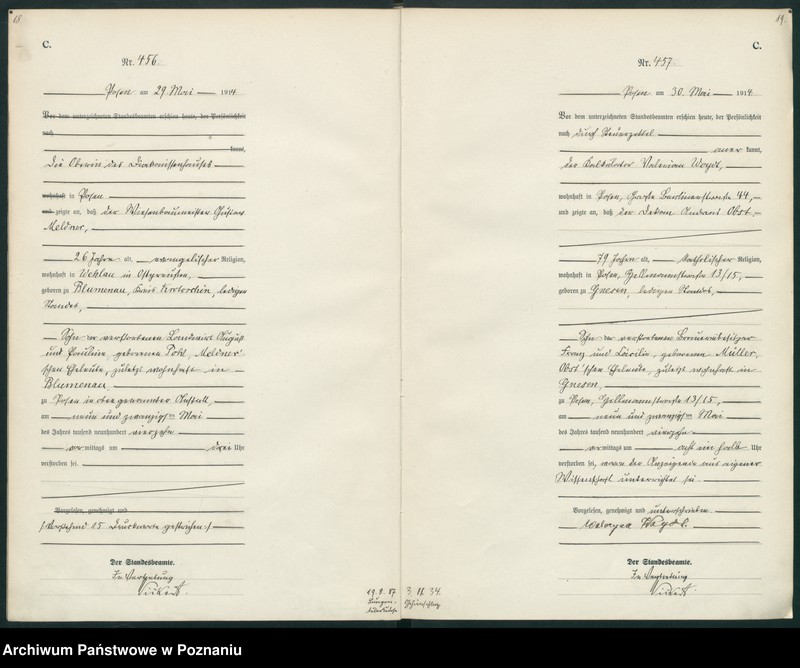 18.
C.
Nr. 456
Posen am 29. Mai 1914
Vor dem unterzeichneten Standesbeamten erschien heute, der Persönlichkeit
nach
kannt,
die Oberin des Diakonissenhauses
wohnhaft in Posen
und zeigte an, daß der Wiesenbaumeister Gustav
Meldner,
26 Jahre alt, evangelischer Religion,
wohnhaft in Wehlau in Ostpreußen,
geboren zu Blumenau, Kreis Krotoschin, ledigen
Standes,
Sohn der verstorbenen Landwirt August
und Pauline, geborenen Pohl, Meldner'
schen Eheleute, zuletzt wohnhaft in
Blumenau,
zu Posen in obengenannter Anstalt,
am neun und zwanzigsten Mai
des Jahres tausend neunhundert vierzehn
vormittags um drei Uhr
verstorben sei.
Vorgelesen, genehmigt und
/: Vorstehend 15 Druckworte gestrichen :/
Der Standesbeamte.
In Vertretung
19.
C.
Nr. 457
Posen am 30. Mai 1914
Vor dem unterzeichneten Standesbeamten erschien heute, der Persönlichkeit
nach durch Steuerzettel
anerkannt,
der Kalkulator Valerian Woydt,
wohnhaft in Posen, Garten 44,
und zeigte an, daß der Dekan Obst,
79 Jahre alt, katholischer Religion,
wohnhaft in Posen, 13/15,
geboren zu Gnesen, ledigen Standes,
Sohn der verstorbenen
Franz und Cäcilia, geborenen Müller,
Obst'schen Eheleute, zuletzt wohnhaft in
Gnesen,
zu Posen, 13/15,
am neun und zwanzigsten Mai
des Jahres tausend neunhundert vierzehn
vormittags um acht ein halb Uhr
verstorben sei, wovon der Anzeigende aus eigener
Wissenschaft unterrichtet sei.
Vorgelesen, genehmigt und unterschrieben
Der Standesbeamte.
In Vertretung
Archiwum Państwowe w Poznaniu